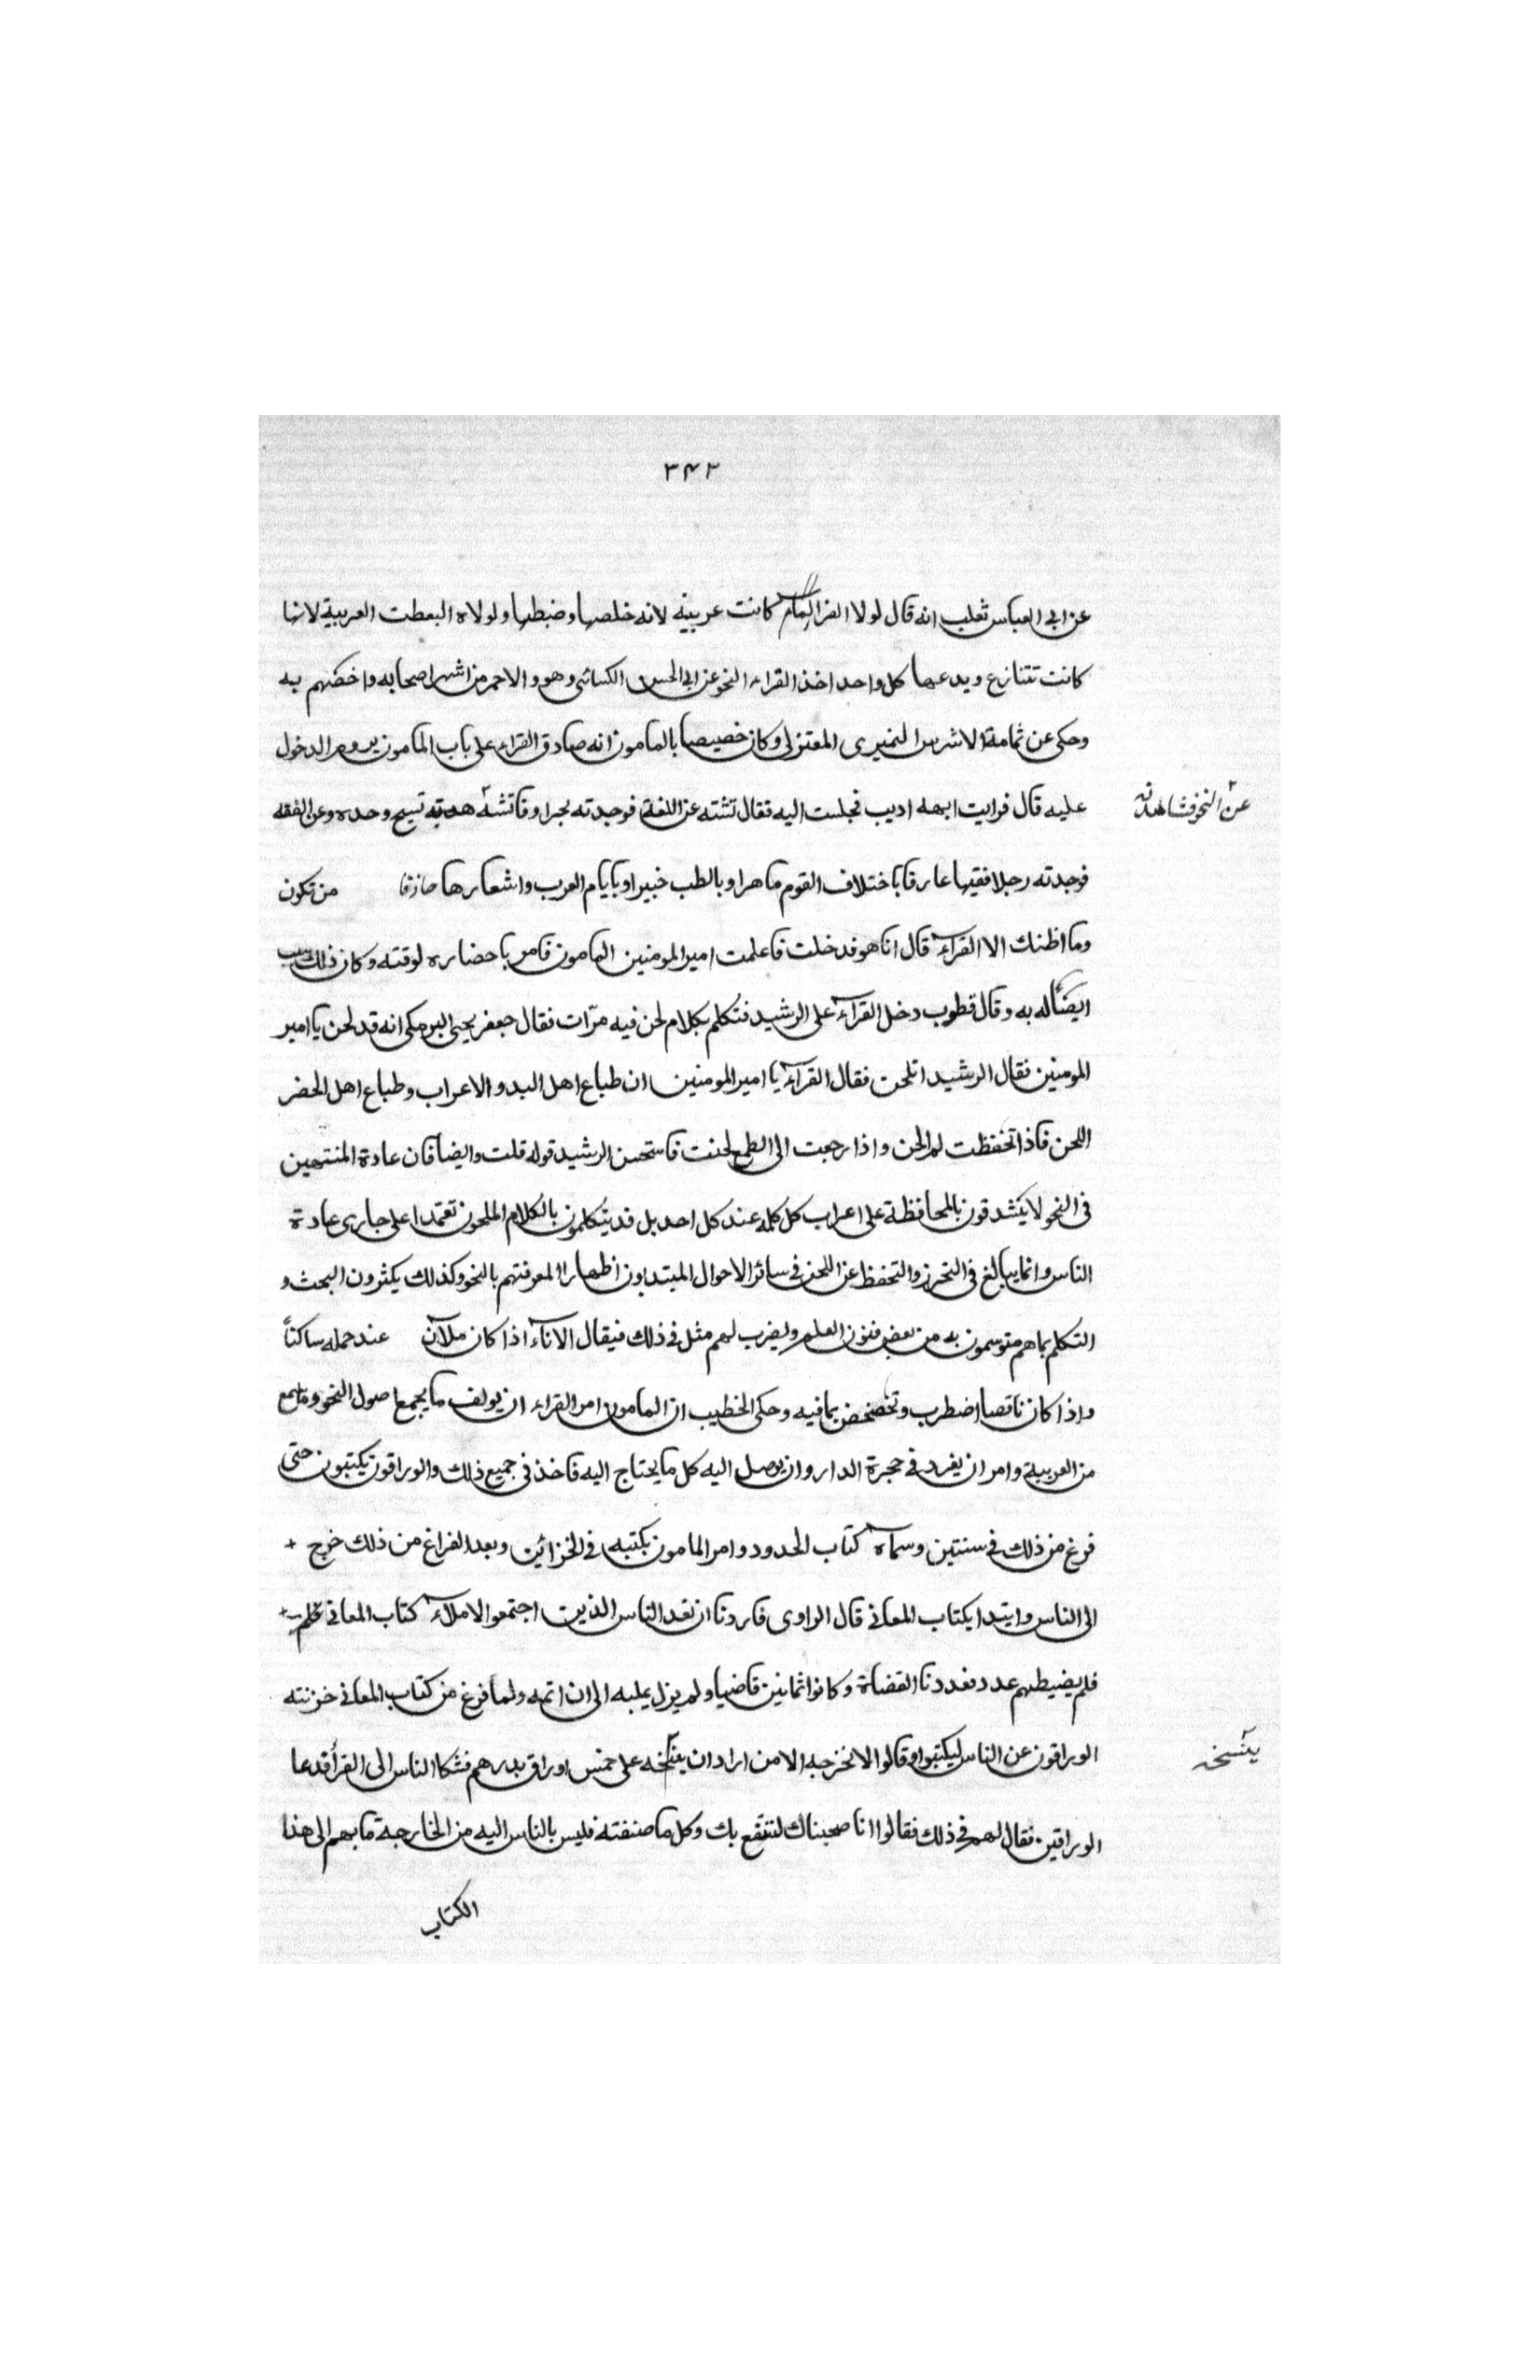 ٣٤٢
عن ابى العباس ثعلب انه قال لولا الفرا لما كانت عربيه لانه خلصها وضبطها ولولاه البعطت العربية لانها
كانت تتنازع ويدعها كل واحد اخذ القراء النحو عن ابى الحسن الكسائى وهو والاحمر من اشهر اصحابه واخصهم به
وحكى عن ثمامة الاشرس النميرى المعتزلى وكان خصيصا بالمامون انه صادق القراء على باب المامون يروم الدخول
عليه قال فرايت ابهه اديب فجلست اليه ففاتشته عن اللغة فوجدته بجرا وفاتشته نسيج وحده وعن الفقه
عن النحو فشاهدته
فوجدته رجلا فقيها عارفا باختلاف القوم ماهرا وبالطب خبيرا وبايام العرب واشعارها حاذقا من تكون
وما اظنك الا القراء قال انا هو فدخلت فاعلمت امير المومنين المامون فامر باحضاره لوقته وكان ذلك سبب
ايضاله به وقال قطوب دخل القراء على الرشيد فتكلم بكلام لحن فيه مرّات فقال جعفر يحيى البرمكى انه قد لحن يا امير
المومنين فقال الرشيد اتلحن فقال القراء يا امير المومنين ان طباع اهل البدو الاعراب وطباع اهل الحضر
اللحن فاذا تحفظت لم الحن واذا رجعت الى الطبع لحنت فاستحسن الرشيد قوله قلت وايضا فان عادة المنتهين
فى النحو لا يتشدقون بالمحافظة على اعراب كل كلمه عند كل احد بل قد يتكلمون بالكلام الملحون تعمّدا على جارى عادة
الناس وانما يبالغ فى التحرز والتحفظ عن اللحن فى سائر الاحوال المبتداون اظهارا لمعرفتهم بالنحو وكذلك يكثرون البحث و
التكلم بما هم متوسمون به من بعض فنون العلم ويضرب لهم مثل فى ذلك فيقال الاناء اذا كان ملآن عند حمله ساكناً
واذا كان ناقصا اضطرب وتخضخض بما فيه وحكى الخطيب ان المامون امر القراء ان يولف ما يجمع اصول النحو وما سمع
من العربية وامر ان يفرد فى حجرة الدار وان يوصل اليه كل ما يحتاج اليه فاخذ فى جميع ذلك والوراقون يكتبون حتى
فرغ من ذلك فى سنتين وسماه كتاب الحدود وامر المامون بكتبه فى الخزائين وبعد الفراغ من ذلك خرج +
الى الناس وابتدا بكتاب المعانى قال الراوى فاردنا ان نعد الناس الذين اجتمعوا لاملاء كتاب المعانى
فلم يضبطهم عدد فعددنا القضاة وكانوا ثمانين قاضيا ولم يزل يمليه الى ان اتمه ولما فرغ من كتاب المعانى خزنته
الوراقون عن الناس ليكتبوا وقالوا لا نخرجه الا من اراد ان ينسخه على خمس اوراق بدرهم فشكا الناس الى الفرا فدعا
ينسخه
الوراقين فقال لهم فى ذلك فقالوا انا صحبناك لننتفع بك وكل ما صنفته فليس بالناس اليه من الخارجة ما بهم الى هذا
الكتاب